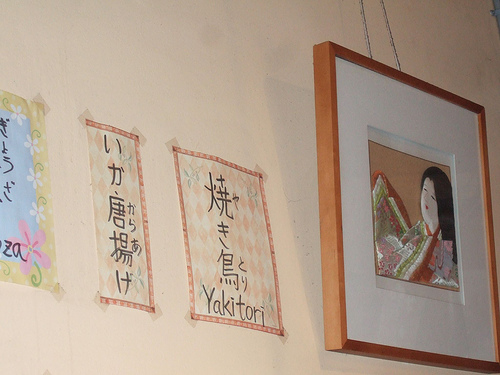 焼き鳥
や
とり
Yakitori
いか唐揚げ
からあ
ぎょうざ
oza